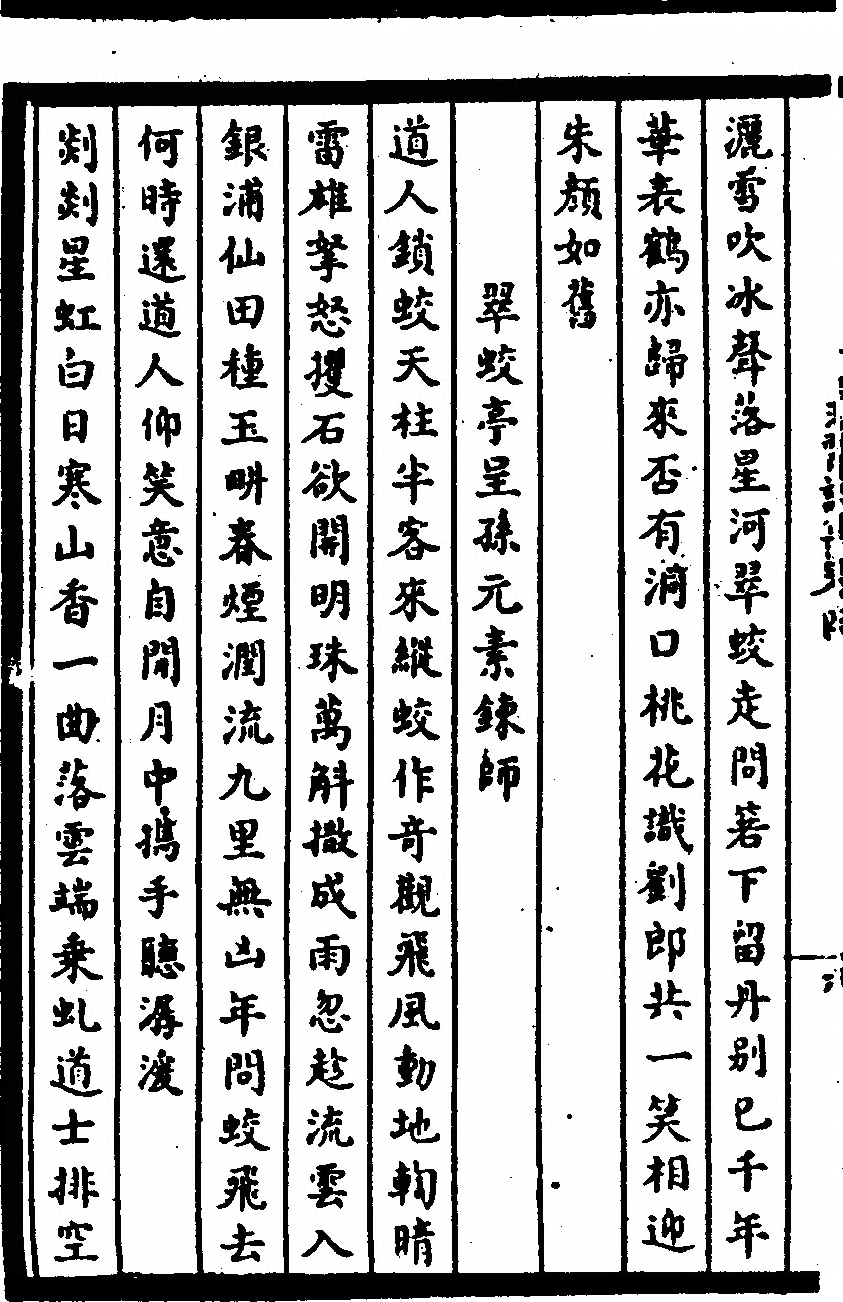 灑雪吹冰聲落星河翠蛟走問箬下留丹別已千年
華表鶴亦歸來否有澗口桃花識劉郎共一笑相迎
朱顏如舊
翠蛟亭呈孫元素鍊師
道人鎖蛟天柱半客來縱蛟作奇觀飛風動地輷晴
雷雄拏怒攫石欲開明珠萬斛撒成雨忽趁流雲入
銀浦仙田種玉畊春煙潤流九里無凶年問蛟飛去
何時還道人仰笑意自閒月中攜手聽潺湲
剡剡星虹白日寒山香一曲落雲端乘虬道士排空